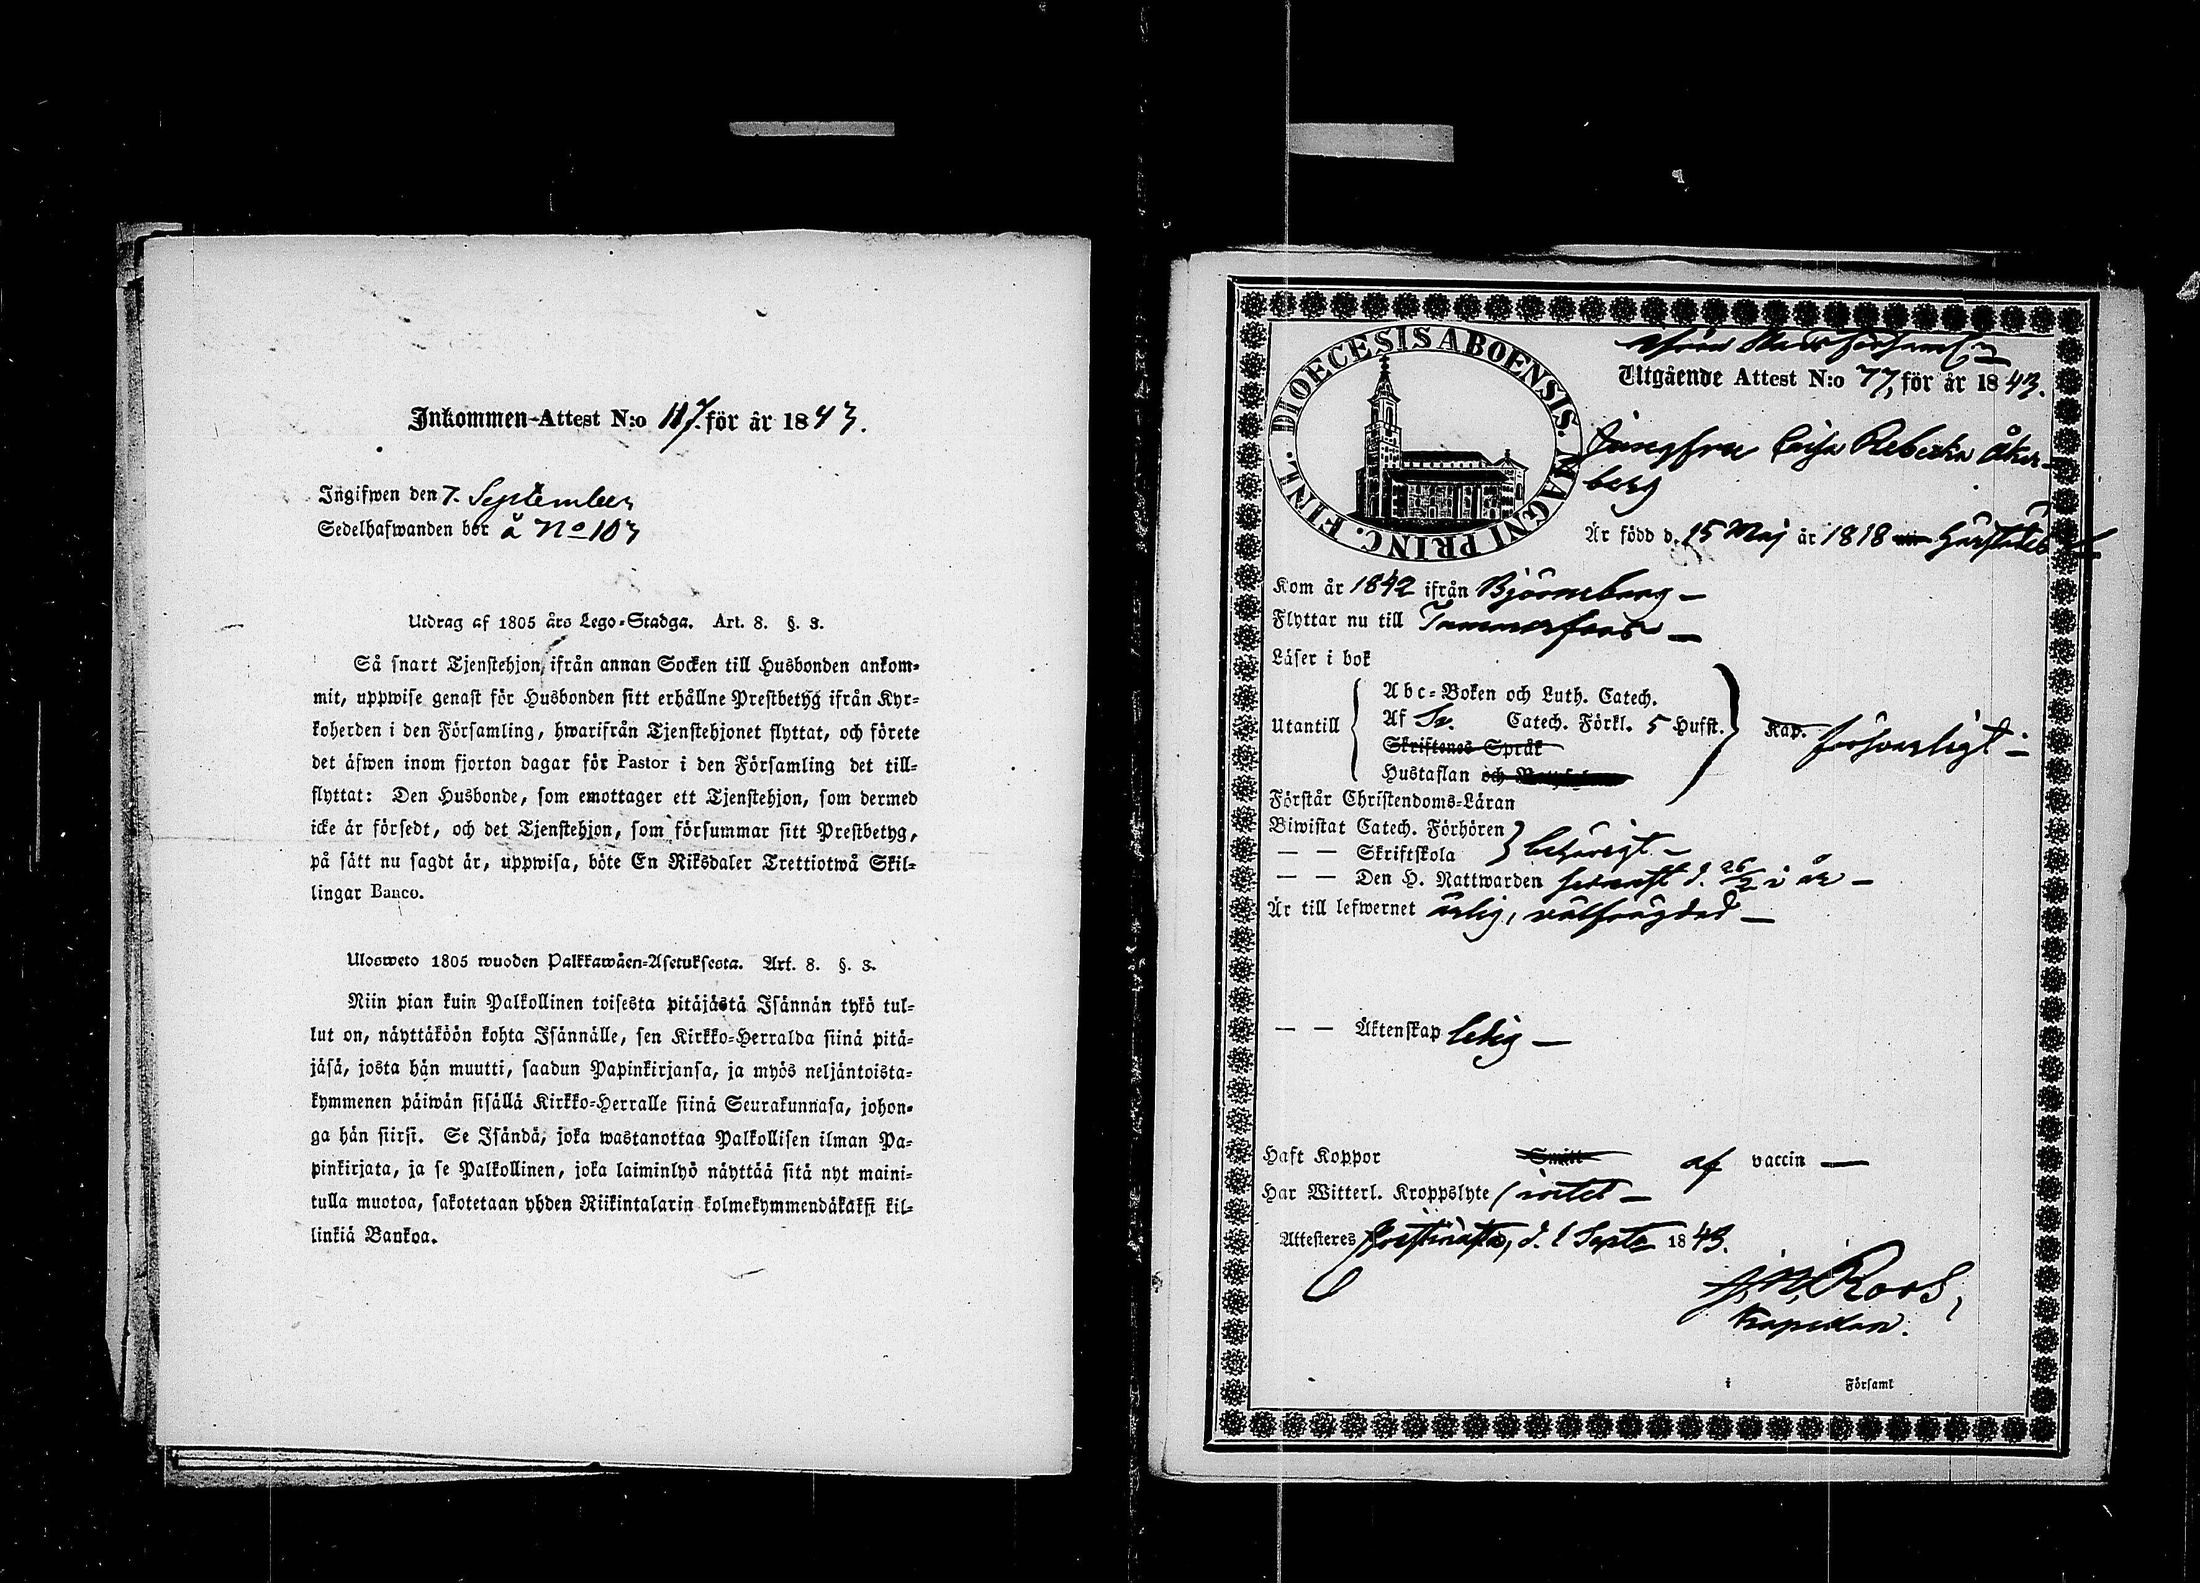 Inkommen-Attest N:o 117. för år 1843.
Ingifwen den 7. September
Sedelhafwanden bor å No 103
Utdrag af 1805 års Lego-Stadga. Art. 8. §. 3.
Så snart Tjenstehjon, ifrån annan Socken till Husbonden ankom-
mit, uppwise genast för Husbonden sitt erhållne Prestbetyg ifrån Kyr-
koherden i den Församling, hwarifrån Tjenstehjonet flyttat, och förete
det äfwen inom fjorton dagar för Pastor i den Församling det till-
flyttat: Den Husbonde, som emottager ett Tjenstehjon, som dermed
icke är försedt, och det Tjenstehjon, som försummar sitt Prestbetyg,
på sätt nu sagdt är, uppwisa, böte En Riksdaler Trettiotwå Skil-
lingar Banco.
Ulosweto 1805 wuoden Palkkawäen-Asetuksesta. Art. 8. §. 3.
Niin pian kuin Palkollinen toisesta pitäjästä Isännän tykö tul-
lut on, näyttäköön kohta Isännälle, sen Kirkko-Herralda siinä pitä-
jäsä, josta hän muutti, saadun Papinkirjansa, ja myös neljäntoista-
kymmenen päiwän sisällä Kirkko-Herralle siinä Seurakunnasa, johon-
ga hän siirsi. Se Isändä, joka wastanottaa Palkollisen ilman Pa-
pinkirjata, ja se Palkollinen, joka laiminlyö näyttää sitä nyt maini-
tulla muotoa, sakotetaan yhden Riikintalarin kolmekymmendäkaksi kil-
linkiä Bankoa.
DIOECESIS ABOENSIS. MAGNI PRINC. FINL.
Utgående Attest N:o 77, för år 1843.
Jungfru Cajsa Rebecka Åker-
berg
Är född d. 15 Maj år 1818
Kom år 1842 ifrån Björneborg –
Flyttar nu till Tammerfors –
Läser i bok
Utantill
Abc-Boken och Luth. Catech.
Af Sv. Catech. Förkl. 5 Hufst.
Skriftenes Språk
Hustaflan och
Kap. försvarligt –
Förstår Christendoms-Läran
Biwistat Catech. Förhören
— — Skriftskola behörigt –
— — Den H. Nattwarden senast d. 26/2 i år –
Är till lefwernet ärlig, välfrägdad –
— — Äktenskap ledig –
Haft Koppor Smitt af vaccin —
Har Witterl. Kroppslyte intet –
Attesteres d. 1 Septr 1843.
J. N. Roos,
Kapellan.
i Församl